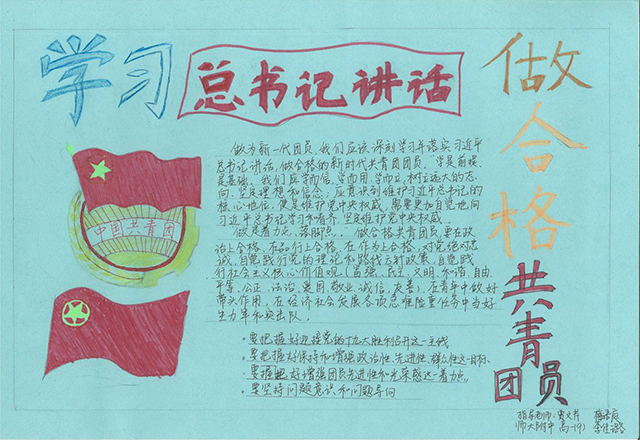 学习
总书记讲话
做合格
共青
团员
中国共青团
做为新一代团员,我们应该深刻学习并落实习近平
总书记讲话,做合格的新时代共青团团员,"学是前提,
是基础。我们应学而信、学而用、学而立,树立远大的志
向,坚定理想和信念。应意识到维护习近平总书记的
核心地位,便是维护党中央权威,需要更加自觉地向
习近平总书记学习和看齐,坚定维护党中央权威
做是着力点、落脚点。"做合格共青团员,要在政
治上合格,在品行上合格,在作为上合格,对党绝对忠
诚,自觉践行党的理论和路线方针政策,自觉践
行社会主义核心价值观(富强、民主、文明、和谐、自由、
平等、公正、法治、爱国、敬业、诚信、友善),在青年中做好
带头作用,在经济社会发展各项急难险重任务中当好
生力军和突击队。
·要把握好迎接党的十九大胜利召开这一主线
·要把握好保持和增强政治性、先进性、群众性这一目标
·要把握好增强团员先进性和光荣感这一着力点
·要坚持问题意识和问题导向
指导老师:
师大附中 高一(9)